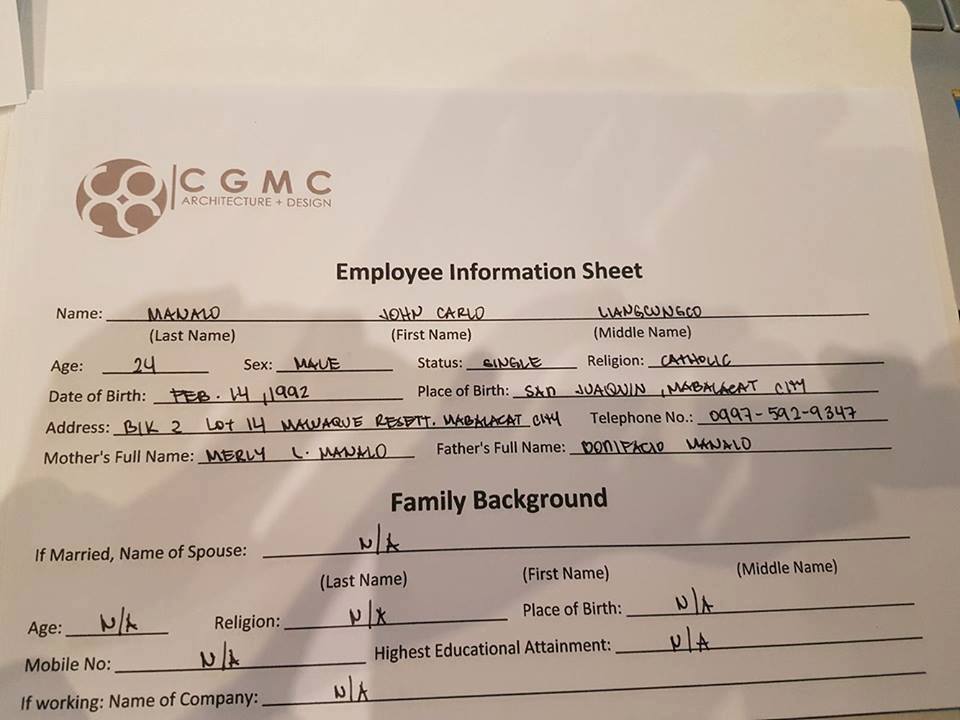 CGMC
ARCHITECTURE + DESIGN
Employee Information Sheet
Name: MANALO JOHN CARLO LIANGCUNGCO
(Last Name) (First Name) (Middle Name)
Age: 24 Sex: MALE Status: SINGLE Religion: CATHOLIC
Date of Birth: FEB. 14, 1992 Place of Birth: SAN JUAQUIN, MABALACAT CITY
Address: BLK 2 LOT 14 MAWAQUE RESETT. MABALACAT CITY Telephone No.: 0997-592-9347
Mother's Full Name: MERLY L. MANALO Father's Full Name: BONIFACIO MANALO
Family Background
If Married, Name of Spouse: N/A
(Last Name) (First Name) (Middle Name)
Age: N/A Religion: N/A Place of Birth: N/A
Mobile No: N/A Highest Educational Attainment: N/A
If working: Name of Company: N/A